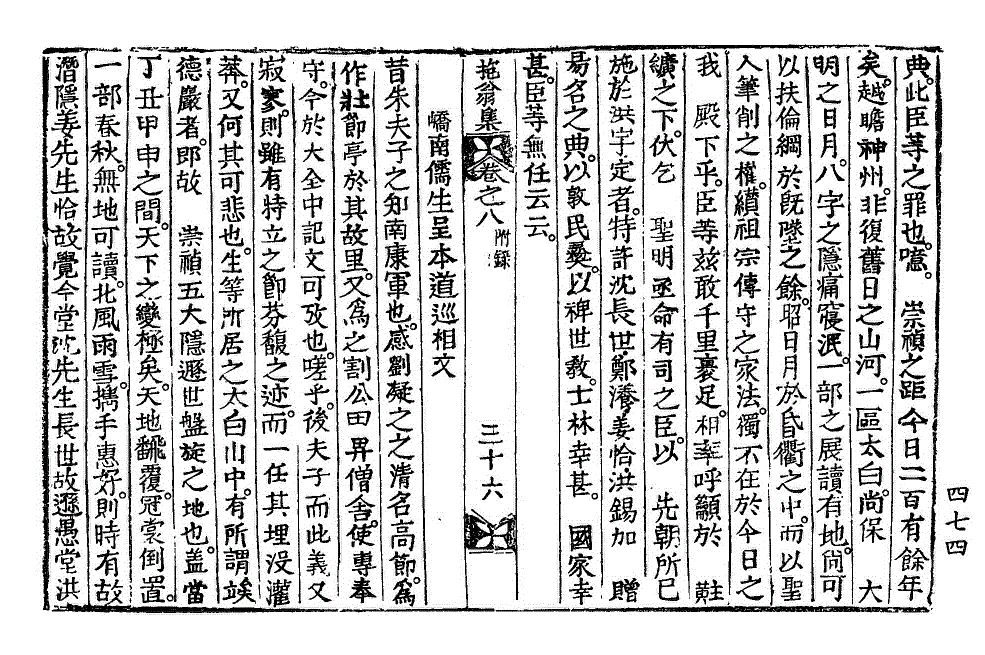 典。此臣等之罪也。噫。 崇禎之距今日二百有餘年
矣。越瞻神州。非復舊日之山河。一區太白。尙保 大
明之日月。八字之隱痛寢泯。一部之展讀有地。尙可
以扶倫綱於旣墜之餘。昭日月於昏衢之中。而以聖
人筆削之權。纘祖宗傳守之家法。獨不在於今日之
我 殿下乎。臣等玆敢千里裹足。相率呼籲於 黈
纊之下。伏乞 聖明亟命有司之臣。以 先朝所已
施於洪宇定者。特許沈長世鄭瀁姜恰洪錫加 贈
易名之典。以敦民彝。以裨世敎。士林幸甚。 國家幸
甚。臣等無任云云。
拖翁集 卷之八 附錄 三十六
嶠南儒生呈本道巡相文
昔朱夫子之知南康軍也。感劉凝之之淸名高節。爲
作壯節亭於其故里。又爲之割公田畀僧舍。使專奉
守。今於大全中記文可攷也。嗟乎。後夫子而此義又
寂寥。則雖有特立之節芬馥之迹。而一任其埋沒灌
莽。又何其可悲也。生等所居之太白山中。有所謂竢
德巖者。卽故 崇禎五大隱遯世盤旋之地也。盖當
丁丑甲申之間。天下之變極矣。天地飜覆。冠裳倒置。
一部春秋。無地可讀。北風雨雪。擕手惠好。則時有故
潛隱姜先生恰故覺今堂沈先生長世故遯愚堂洪
四七四